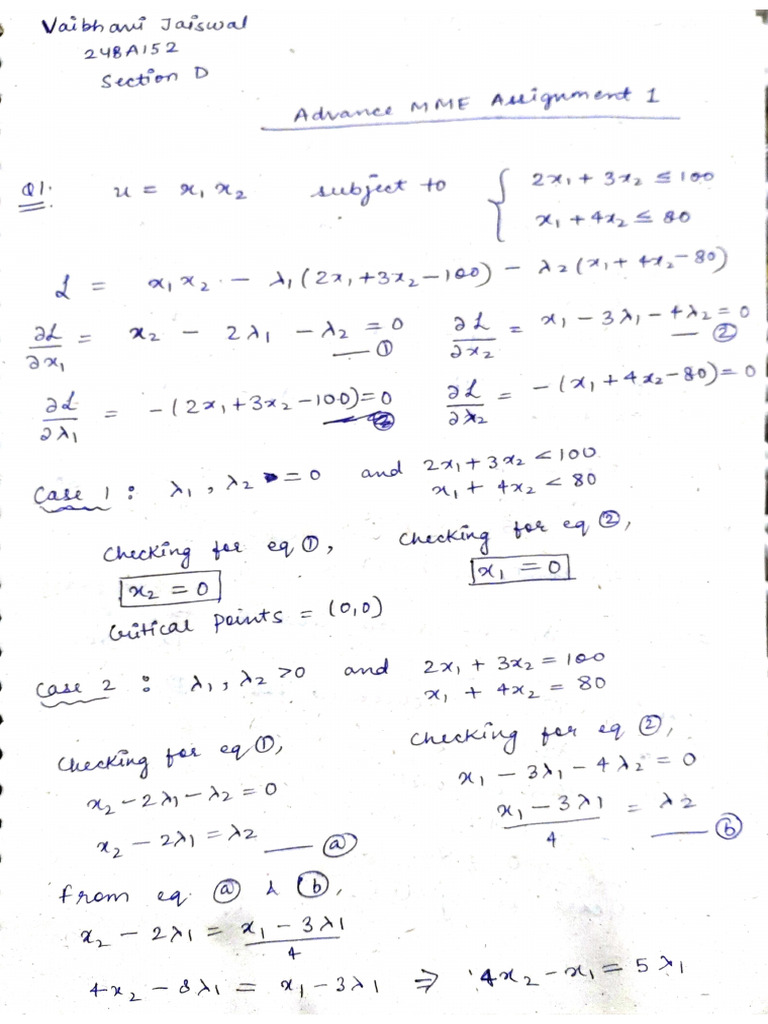 Vaibhavi Jaiswal
24BA152
Section D
Advance MME Assignment 1
Q1. u = x₁ x₂ subject to { 2x₁ + 3x₂ ≤ 100
x₁ + 4x₂ ≤ 80
ℒ = x₁x₂ - λ₁(2x₁+3x₂-100) - λ₂(x₁+4x₂-80)
∂ℒ/∂x₁ = x₂ - 2λ₁ - λ₂ = 0 — ① ∂ℒ/∂x₂ = x₁ - 3λ₁ - 4λ₂ = 0 — ②
∂ℒ/∂λ₁ = -(2x₁+3x₂-100)=0 ∂ℒ/∂λ₂ = -(x₁+4x₂-80)=0
Case 1 : λ₁, λ₂ = 0 and 2x₁+3x₂ < 100
x₁ + 4x₂ < 80
Checking for eq ①, Checking for eq ②,
x₂ = 0 x₁ = 0
Critical points = (0,0)
Case 2 : λ₁, λ₂ >0 and 2x₁ + 3x₂ = 100
x₁ + 4x₂ = 80
Checking for eq ①, Checking for eq ②,
x₂ - 2λ₁ - λ₂ = 0 x₁ - 3λ₁ - 4λ₂ = 0
x₂ - 2λ₁ = λ₂ — ⓐ (x₁ - 3λ₁)/4 = λ₂ — ⓑ
from eq ⓐ & ⓑ,
x₂ - 2λ₁ = (x₁ - 3λ₁)/4
4x₂ - 8λ₁ = x₁ - 3λ₁ ⇒ 4x₂ - x₁ = 5λ₁